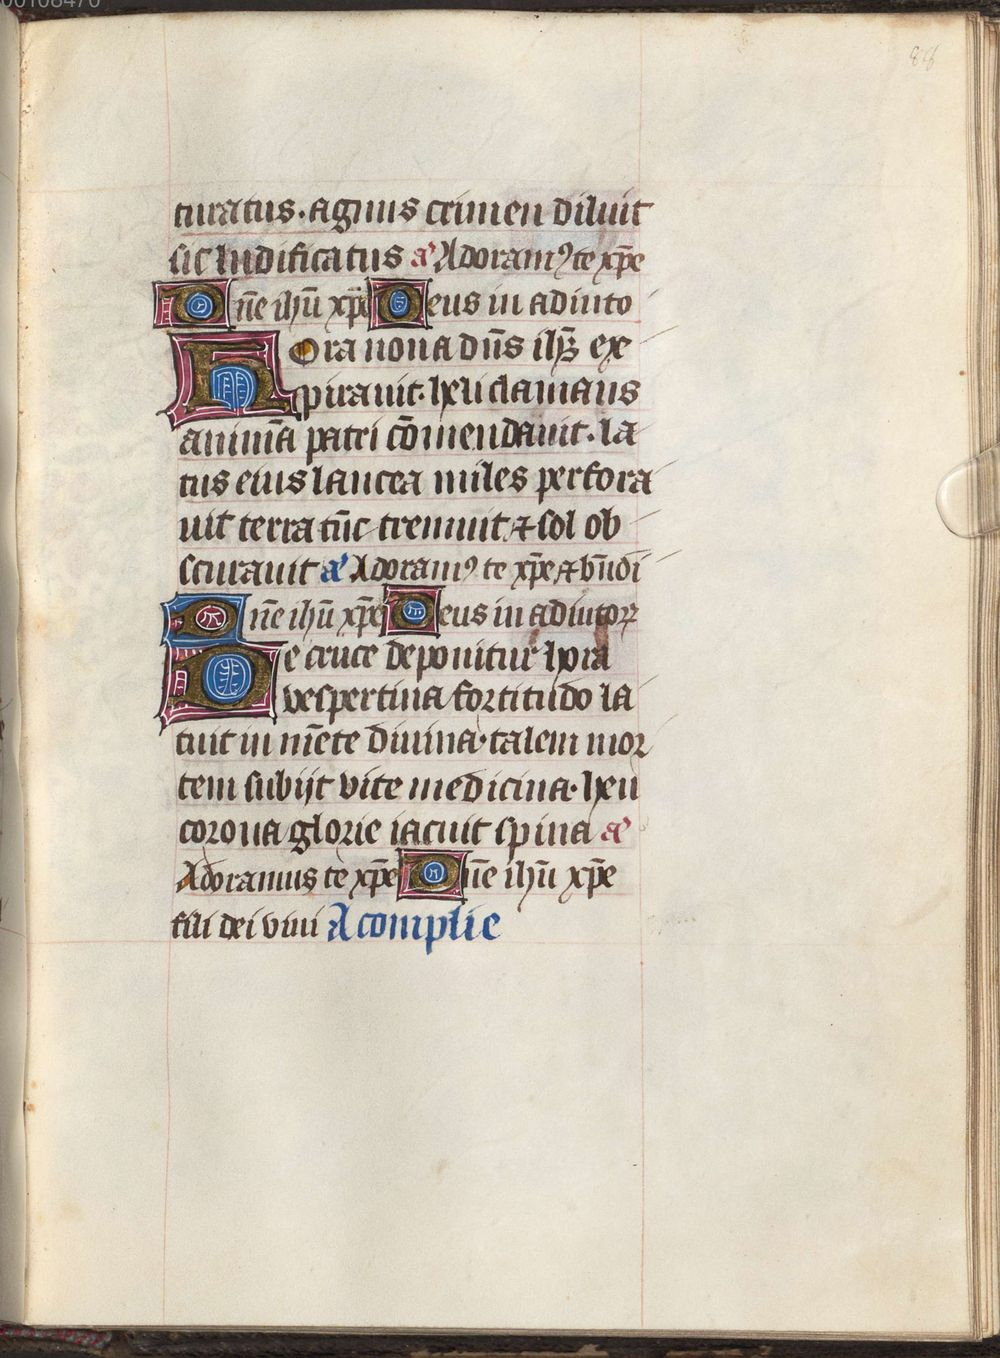 00108470
88
turatus. agnus crimen diluit
sic ludificatus a᷎ Adoramꝰ te xp̄e
Dn̄e ihū xp̄e Deus in adiuto
Hora nona dn̄s ihs̄ ex
pirauit. hely clamans
animā patri cōmendauit. la
tus eius lancea miles perfora
uit terra tūc tremuit ⁊ sol ob
scurauit a᷎ Adoramꝰ te xp̄e ⁊ bn̄di
Dn̄e ihū xp̄e Deus in adiutoꝝ
De cruce deponitur hora
vespertina fortitudo la
tuit in mēte diuina. talem mor
tem subijt vite medicina. heu
corona glorie iacuit spina a᷎
Adoramus te xp̄e Dn̄e ihū xp̄e
fili dei viui A complie